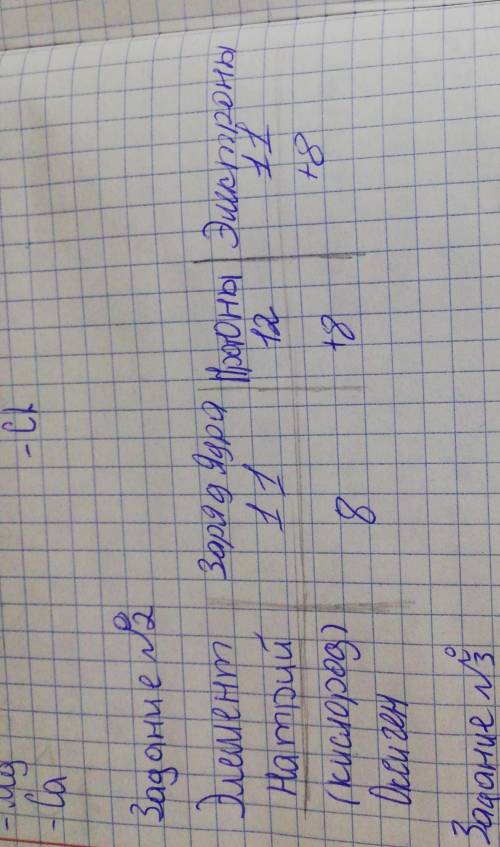 - Mg
- Ca - Cl
Задание №2
Элемент Заряд ядра Протоны Электроны
Натрий 11 12 11
(кислород) 8 +8 +8
Оксиген
Задание №3